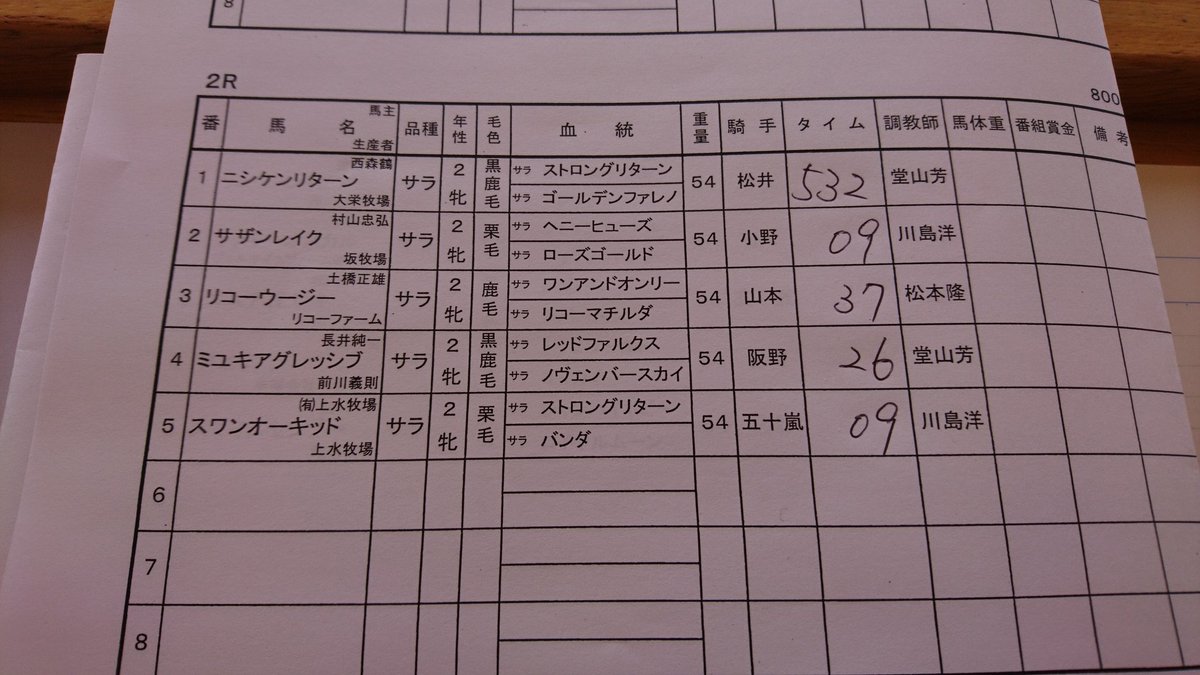 8
2R
800
番 馬名 馬主 生産者 品種 年性 毛色 血統 重量 騎手 タイム 調教師 馬体重 番組賞金 備考
西森鶴
1 ニシケンリターン サラ 2 牝 黒鹿毛 サラ ストロングリターン 54 松井 532 堂山芳
大栄牧場 サラ ゴールデンファレノ
村山忠弘
2 サザンレイク サラ 2 牝 栗毛 サラ ヘニーヒューズ 54 小野 09 川島洋
坂牧場 サラ ローズゴールド
土橋正雄
3 リコーウージー サラ 2 牝 鹿毛 サラ ワンアンドオンリー 54 山本 37 松本隆
リコーファーム サラ リコーマチルダ
長井純一
4 ミユキアグレッシブ サラ 2 牝 黒鹿毛 サラ レッドファルクス 54 阪野 26 堂山芳
前川義則 サラ ノヴェンバースカイ
(有)上水牧場
5 スワンオーキッド サラ 2 牝 栗毛 サラ ストロングリターン 54 五十嵐 09 川島洋
上水牧場 サラ バンダ
6
7
8